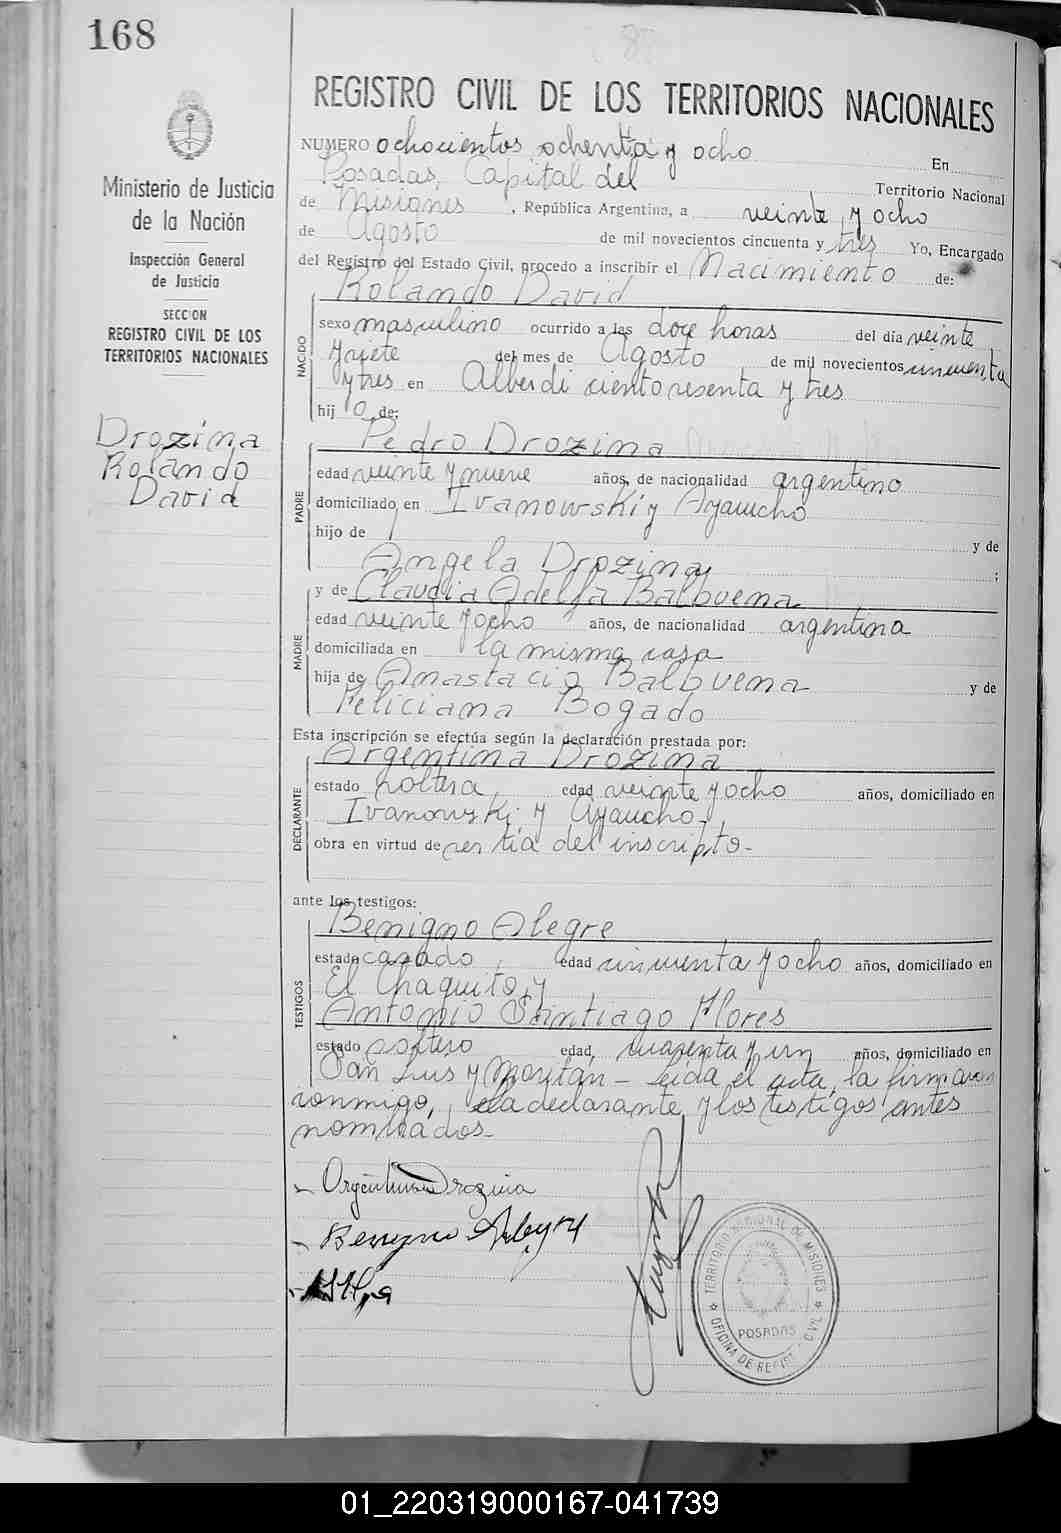 168
REGISTRO CIVIL DE LOS TERRITORIOS NACIONALES
Ministerio de Justicia
de la Nación
Inspección General
de Justicia
SECCION
REGISTRO CIVIL DE LOS
TERRITORIOS NACIONALES
Drozina
Rolando
David
NUMERO ochocientos ochenta y ocho En
Posadas, Capital del Territorio Nacional
de Misiones, República Argentina, a veinte y ocho
de Agosto de mil novecientos cincuenta y tres Yo, Encargado
del Registro del Estado Civil, procedo a inscribir el Nacimiento de:
Rolando David
NACIDO
sexo masculino ocurrido a las doce horas del día veinte
y siete del mes de Agosto de mil novecientos cincuenta
y tres en Alberdi ciento sesenta y tres
hijo de:
Pedro Drozina
PADRE
edad veinte y nueve años, de nacionalidad argentino
domiciliado en Ivanowski y Ayacucho
hijo de y de
Angela Drozina y ;
y de Claudia Adelfa Balbuena
MADRE
edad veinte y ocho años, de nacionalidad argentina
domiciliada en la misma casa
hija de Anastacio Balbuena y de
Feliciana Bogado
Esta inscripción se efectúa según la declaración prestada por:
Argentina Drozina
DECLARANTE
estado soltera, edad veinte y ocho años, domiciliado en
Ivanowski y Ayacucho.,
obra en virtud de ser tia del inscripto-
ante los testigos:
Benigno Alegre
TESTIGOS
estado casado, edad cincuenta y ocho años, domiciliado en
El Chaquito, y
Antonio Santiago Flores
estado soltero edad, cuarenta y un años, domiciliado en
San Luis y Moritán - Leida el acta, la firmaron
conmigo, la declarante y los testigos antes
nombrados-
Argentina Drozina
Benigno Alegre
TERRITORIO NACIONAL DE MISIONES
POSADAS
OFICINA DE REGIST. CIVIL
01_220319000167-041739